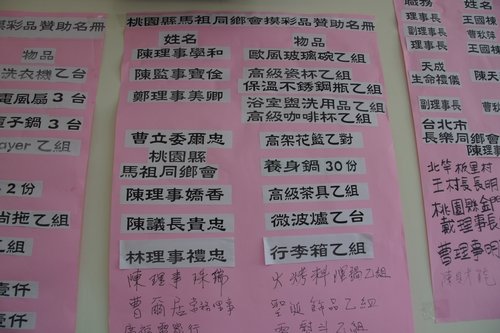 摸彩品贊助名冊
物品
洗衣機乙台
電風扇3台
電子鍋3台
ayer乙組
2份
拖乙組
乙組
壹仟
壹仟
桃園縣馬祖同鄉會摸彩品贊助名冊
姓名 物品
陳理事學和 歐風玻璃碗乙組
陳監事寶佺 高級瓷杯乙組
保溫不銹鋼瓶乙組
鄭理事美卿 浴室盥洗用品乙組
高級咖啡杯乙組
曹立委爾忠 高架花籃乙對
桃園縣
馬祖同鄉會 養身鍋30份
陳理事嬌香 高級茶具乙組
陳議長貴忠 微波爐乙台
林理事禮忠 行李箱乙組
陳理事珠 火烤料理鍋乙組
曹爾 理事 聖誕飾品乙組
職務 姓
理事長 王國棟
副理事長 曹
理事長 王國棟
天成
生命禮儀 陳
副理事長 曹
台北市
長樂同鄉 陳理事
北竿板里村
王村長長明
桃園縣金門
戴理事長
曹理事明